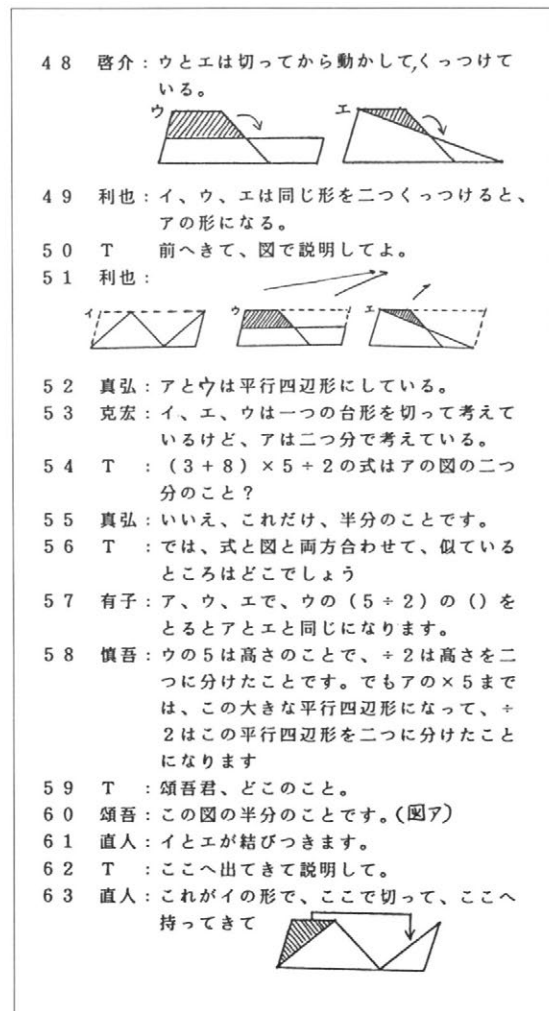 48 啓介：ウとエは切ってから動かして,くっつけて
いる。
ウ エ
49 利也：イ、ウ、エは同じ形を二つくっつけると、
アの形になる。
50 T 前へきて、図で説明してよ。
51 利也：
イ ウ エ
52 真弘：アとウは平行四辺形にしている。
53 克宏：イ、エ、ウは一つの台形を切って考えて
いるけど、アは二つ分で考えている。
54 T ：(3＋8)×5÷2の式はアの図の二つ
分のこと？
55 真弘：いいえ、これだけ、半分のことです。
56 T ：では、式と図と両方合わせて、似ている
ところはどこでしょう
57 有子：ア、ウ、エで、ウの(5÷2)の()を
とるとアとエと同じになります。
58 慎吾：ウの5は高さのことで、÷2は高さを二
つに分けたことです。でもアの×5まで
は、この大きな平行四辺形になって、÷
2はこの平行四辺形を二つに分けたこと
になります
59 T ：頌吾君、どこのこと。
60 頌吾：この図の半分のことです。(図ア)
61 直人：イとエが結びつきます。
62 T ：ここへ出てきて説明して。
63 直人：これがイの形で、ここで切って、ここへ
持ってきて